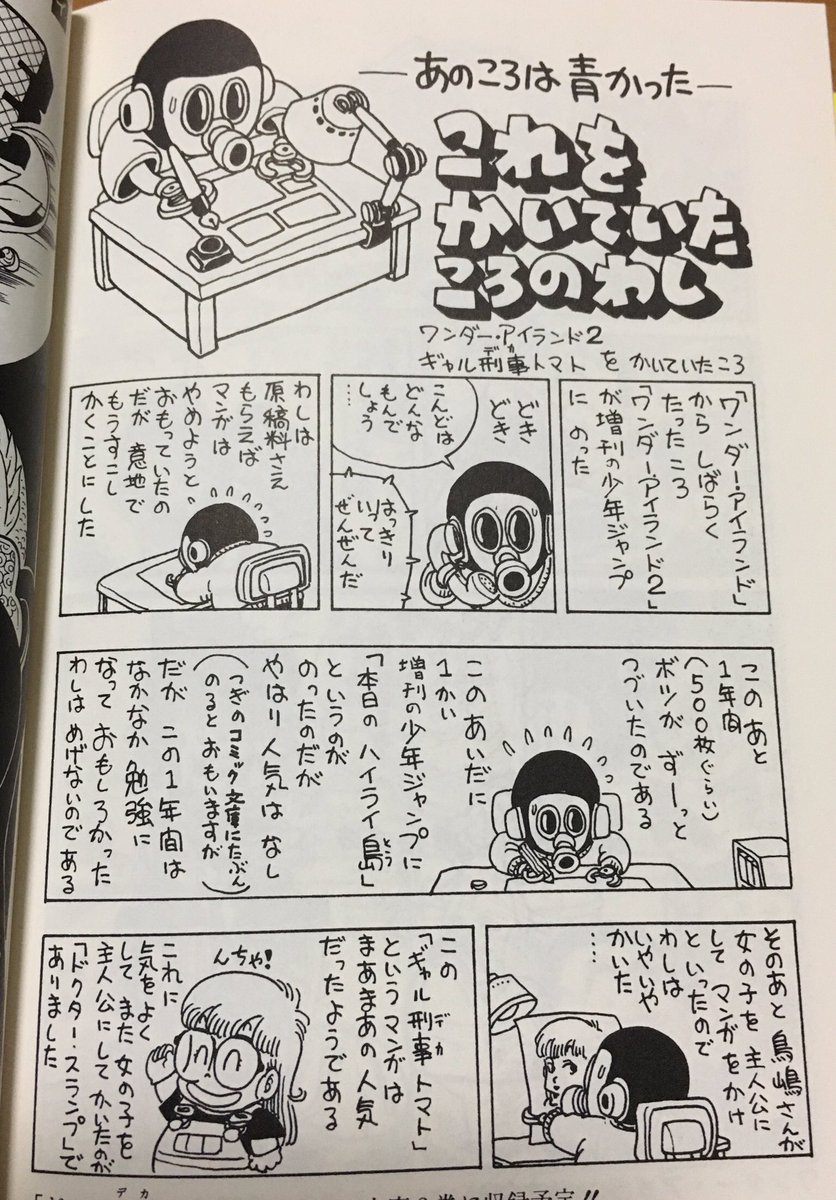 ―あのころは青かった―
これを
かいていた
ころのわし
ワンダー・アイランド2
ギャル刑事デカトマト を かいていたころ
「ワンダー・アイランド」
から しばらく
たったころ
「ワンダーアイランド2」
が増刊の少年ジャンプ
に のった
どき
どき
こんどは
どんな
もんで
しょう
…
はっきり
いって
ぜんぜんだ
わしは
原稿料さえ
もらえば
マンガは
やめようと
おもっていたの
だが 意地で
もうすこし
かくことにした
このあと
1年間
(500枚ぐらい)
ボツが ずーっと
つづいたのである
このあいだに
1かい
増刊の少年ジャンプに
「本日の ハイライ島とう」
というのが
のったのだが
やはり人気は なし
(つぎのコミック文庫にたぶん
のると おもいますが)
だが この1年間は
なかなか 勉強に
なって おもしろかった
わしは めげないのである
そのあと 鳥嶋さんが
女の子を 主人公に
して マンガをかけ
といったので
わしは
いやいや
かいた
……
この
「ギャル刑事デカ トマト」
という マンガは
まあまあの 人気
だったようである
んちゃ!
これに
気をよく
して また 女の子を
主人公に して かいたのが
「ドクター・スランプ」で
ありました